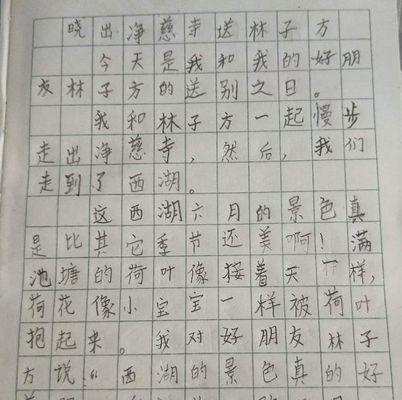 晓出净慈寺送林子方
今天是我和我的好朋
友林子方的送别之日。
我和林子方一起慢步
走出净慈寺,然后,我们
走到了西湖。
这西湖六月的景色真
是比其它季节还美啊!满
池塘的荷叶像接着天一样,
荷花像小宝宝一样被荷叶
抱起来。我对好朋友林子
方说:“西湖的景色真的好